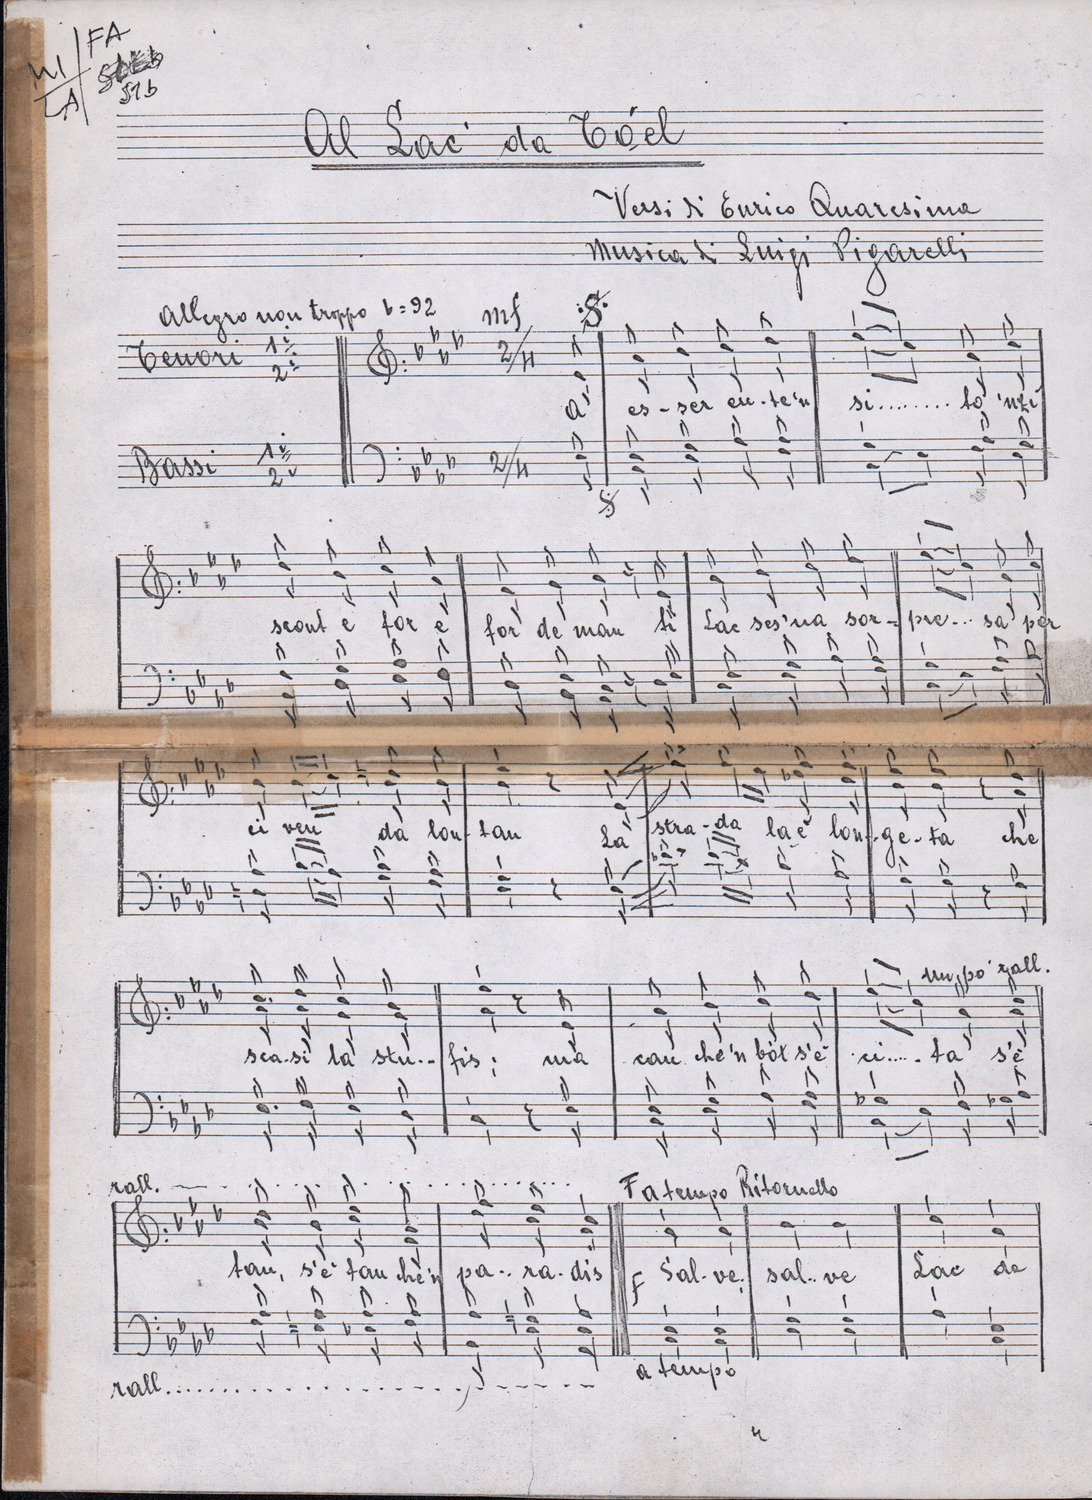 MI FA
LA SIb
Al Lac' da Tóel
Versi di Enrico Quaresima
Musica di Luigi Pigarelli
Allegro non troppo = 92 mf
Tenori 1i 2i 2/4
A es-ser en-te'n si........ to'nzi
Bassi 1i 2i 2/4
scont e for e for de man ti Lac ses'na sor- pre... sa per
ci ven da lon-tan La stra-da la è lon-ge-ta che
un po' rall.
sca-si la stu-- fis; ma can che'n bòt s'è ci.... ta s'è
rall. F a tempo Ritornello
tan, s'è tan che'n pa-- ra-dis F Sal-ve. sal-- ve Lac de
a tempo
rall.